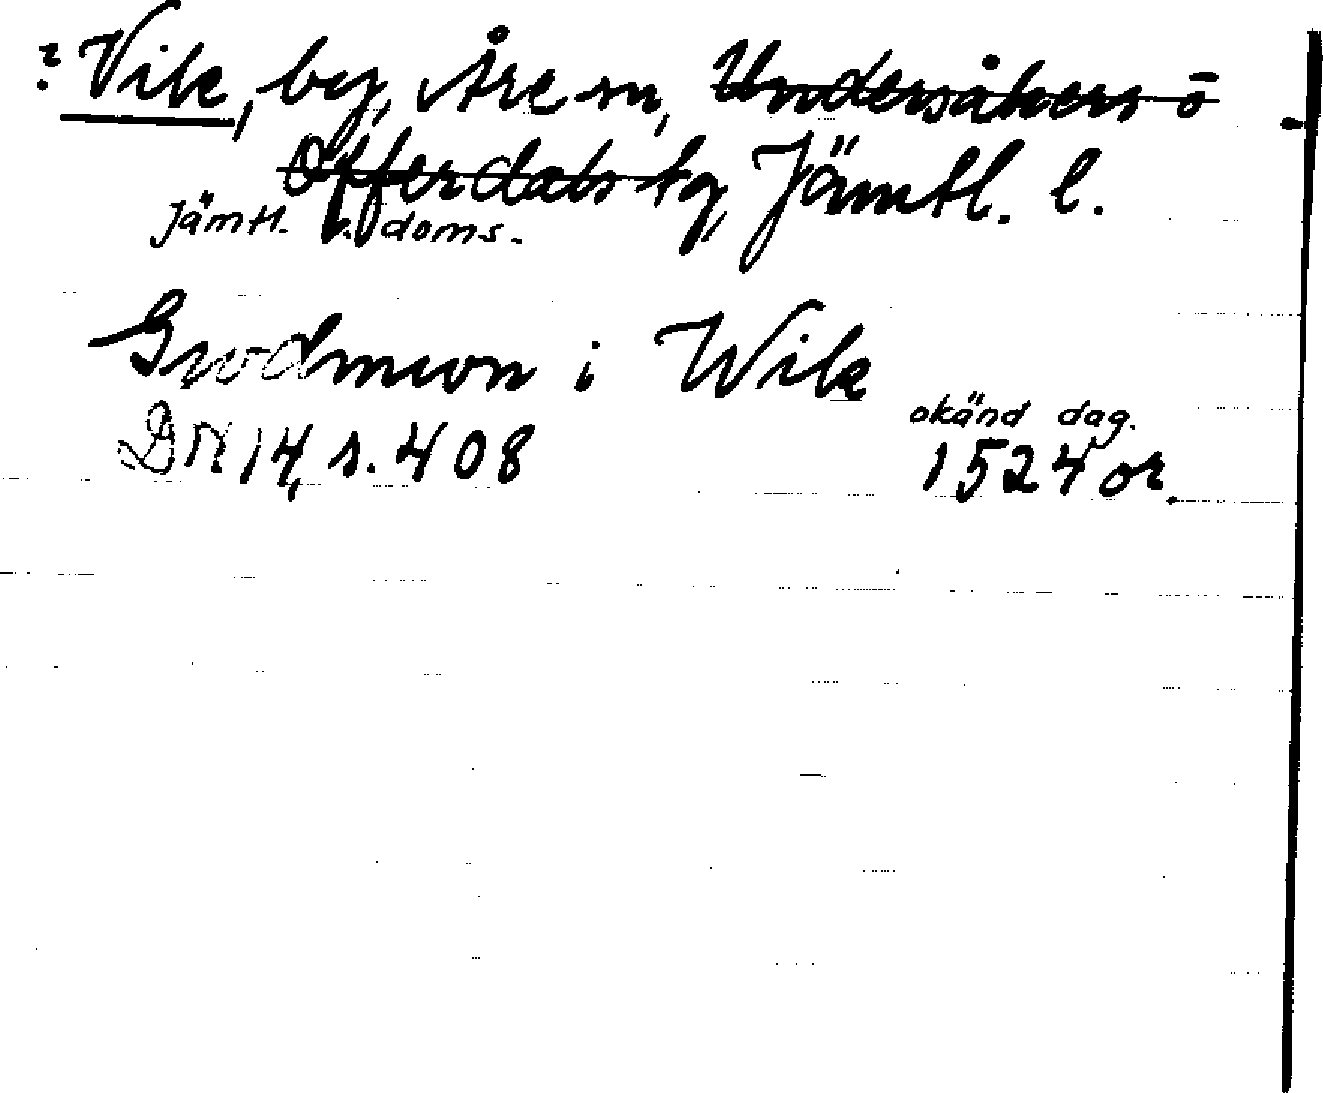 ? Vik, by, Åre sn, Undersåkers o
Offerdals tg, Jämtl. l.
Jämtl. v. doms.
Gudmwn i Wik
okänd dag.
DN 14, s. 408 1524 or.